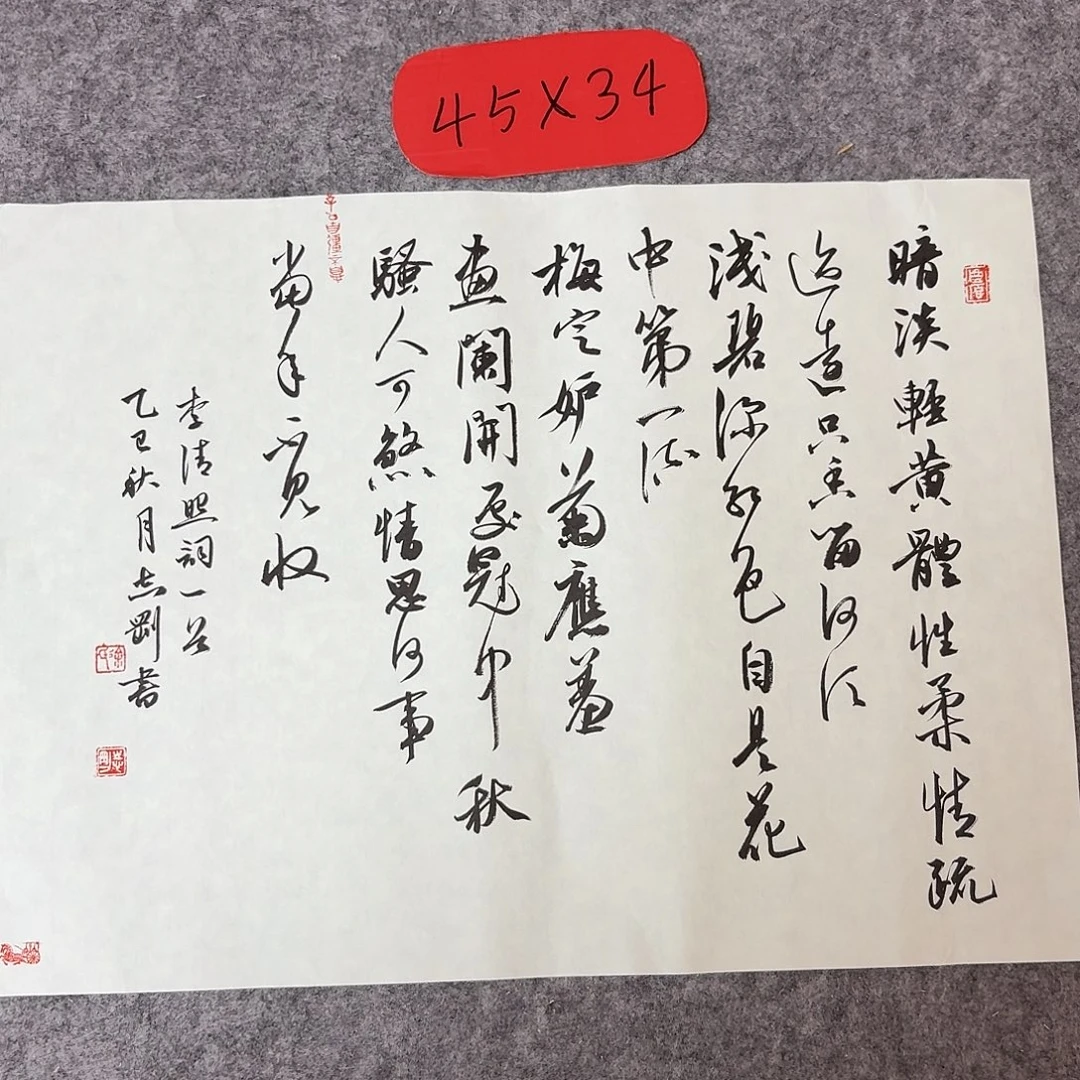 45X34
暗淡輕黄體性柔情疏
迹遠只香留何須
淺碧深紅色自是花
中第一流
梅定妒菊應羞
畫闌開處冠中秋
騷人可煞情思何事
當年不見收
李清照詞一首
乙巳秋月志剛書